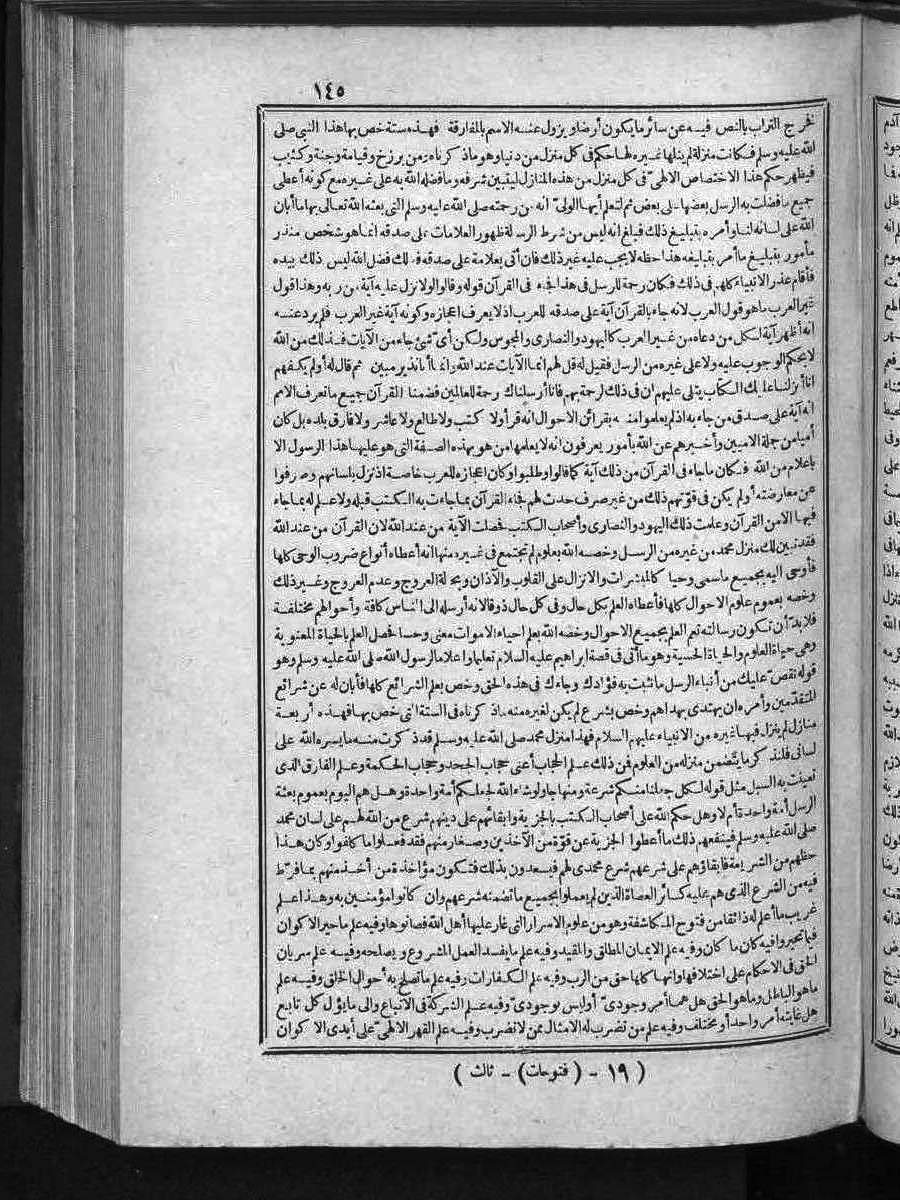 ١٤٥
فخرج التراب بالنص فيه عن سائر ما يكون أرضا ويزول عنه الاسم بالمفارقة فهذه ستة خص بها هذا النبي صلى
الله عليه وسلم فكانت منزلة لم ينلها غيره لها حكم في كل منزل من دنيا وهو ما ذكرناه ومن برزخ وقيامة وجنة وكثيب
فيظهر حكم هذا الاختصاص الالهي في كل منزل من هذه المنازل ليتبين شرفه وما فضله الله به على غيره مع كونه أعطى
جميع ما فضلت به الرسل بعضها على بعض ثم لتعلم أيها الولي انه من رحمته صلى الله عليه وسلم التي بعثه الله تعالى بها ما أبان
الله على لسانه لنا وأمره بتبليغ ذلك فبلغ انه ليس من شرط الرسالة ظهور العلامات على صدقه انما هو شخص منذر
مأمور بتبليغ ما أمر بتبليغه هذا حظه لا يجب عليه غير ذلك فان أتى بعلامة على صدقه فذلك فضل الله ليس ذلك بيده
فأقام عذر الانبياء كلهم في ذلك فكان رحمة للرسل في هذا فجاء في القرآن قوله وقالوا لولا نزل عليه آية من ربه وهذا قول
غير العرب ما هو قول العرب لانه جاء بالقرآن آية على صدقه للعرب اذ لا يعرف اعجازه وكونه آية غير العرب فلم يرد عنه
انه أظهر آية لكل من دعاه من غير العرب كاليهود والنصارى والمجوس ولكن أي شئ جاء من الآيات فذلك من الله
لا بحكم الوجوب عليه ولا على غيره من الرسل فقيل له قل لهم انما الآيات عند الله وانما أنا نذير مبين ثم قال له أولم يكفهم
انا أنزلنا عليك الكتاب يتلى عليهم ان في ذلك لرحمة بهم فانا أرسلناك رحمة للعالمين فضمنا القرآن جميع ما تعرف الامم
انه آية على صدق من جاء به اذ لم يعلموا منه بقرائن الاحوال انه قرأ ولا كتب ولا طالع ولا عاشر ولا فارق بلده بل كان
أميا من جملة الاميين وأخبرهم عن الله بأمور يعرفون انه لا يعلمها من هو بهذه الصفة التي هو عليها هذا الرسول الا
باعلام من الله فكان ما جاء في القرآن من ذلك آية كما قالوا وطلبوا وكان اعجازه للعرب خاصة اذ نزل بلسانهم وصرفوا
عن معارضته أو لم يكن في قوتهم ذلك من غير صرف حدث لهم فجاء القرآن بما جاءت به الكتب قبله ولا علم له بما جاء
فيها الا من القرآن وعلمت ذلك اليهود والنصارى وأصحاب الكتب فحصلت الآية من عند الله لان القرآن من عند الله
فقد تبين لك منزل محمد من غيره من الرسل وخصه الله بعلوم لم تجتمع في غيره منها انه أعطاه أنواع ضروب الوحي كلها
فأوحى اليه بجميع ما سمي وحيا كالمبشرات والانزال على القلوب والآذان وبحالة العروج وعدم العروج وغير ذلك
وخصه بعموم علوم الاحوال كلها فأعطاه العلم بكل حال وفي كل حال ذوقا لانه أرسله الى الناس كافة وأحوالهم مختلفة
فلا بد أن تكون رسالته تعم العلم بجميع الاحوال وخصه الله بعلم احياء الاموات معنى وحسا فحصل العلم بالحياة المعنوية
وهي حياة العلوم والحياة الحسية وهو ما أتى في قصة ابراهيم عليه السلام تعليما واعلاما لرسول الله صلى الله عليه وسلم وهو
قوله نقص عليك من أنباء الرسل ما نثبت به فؤادك وجاءك في هذه الحق وخص بعلم الشرائع كلها فأبان له عن شرائع
المتقدمين وأمره ان يهتدى بهداهم وخص بشرع لم يكن لغيره منه ما ذكرناه في الستة التي خص بها فهذه أربعة
منازل لم ينزل فيها غيره من الانبياء عليهم السلام فهذا منزل محمد صلى الله عليه وسلم قد ذكرت منه ما يسره الله على
لساني فلنذكر ما يتضمن منزله من العلوم فمن ذلك علم الحجاب أعنى حجاب الجحد وحجاب الحكمة وعلم الفارق الذى
تعينت به السبل مثل قوله لكل جعلنا منكم شرعة ومنهاجا ولو شاء الله لجعلكم أمة واحدة وهل هم اليوم بعموم بعثة
الرسل أمة واحدة أم لا وهل حكم الله على أصحاب الكتب بالجزية وابقائهم على دينهم شرع من الله لهم على لسان محمد
صلى الله عليه وسلم فينفعهم ذلك ما أعطوا الجزية عن قوة من الآخذين وصغار منهم فقد فعلوا ما كلفوا وكان هذا
حظهم من الشريعة فابقاؤهم على شرعهم شرع محمدى لهم فيسعدون بذلك فتكون مؤاخذة من أخذ منهم بما فرط
فيه من الشرع الذى هم عليه كسائر العصاة الذين لم يعملوا بجميع ما تضمنه شرعهم وان كانوا مؤمنين به وهذا علم
غريب ما أعلم له ذائقا من فتوح المكاشفة وهو من علوم الاسرار التي غار عليها أهل الله فصانوها وفيه علم ما حير الاكوان
فيما تحيروا فيه كان ما كان وفيه علم الايمان المطلق والمقيد وفيه علم ما يفسد العمل المشروع ويصلحه وفيه علم سريان
الحق في الاحكام على اختلافها وانها كلها حق من الرب وفيه علم الكفارات وفيه علم ما تصلح به أحوال الخلق وفيه علم
ما هو الباطل وما هو الحق هل هما أمر وجودى أو ليس بوجودى وفيه علم الشركة في الاتباع والى ما يؤل كل تابع
هل غايته أمر واحد أو مختلف وفيه علم من تضرب له الامثال ممن لا تضرب وفيه علم القهر الالهي على أيدى الاكوان
( ١٩ - (فتوحات) - ثالث )